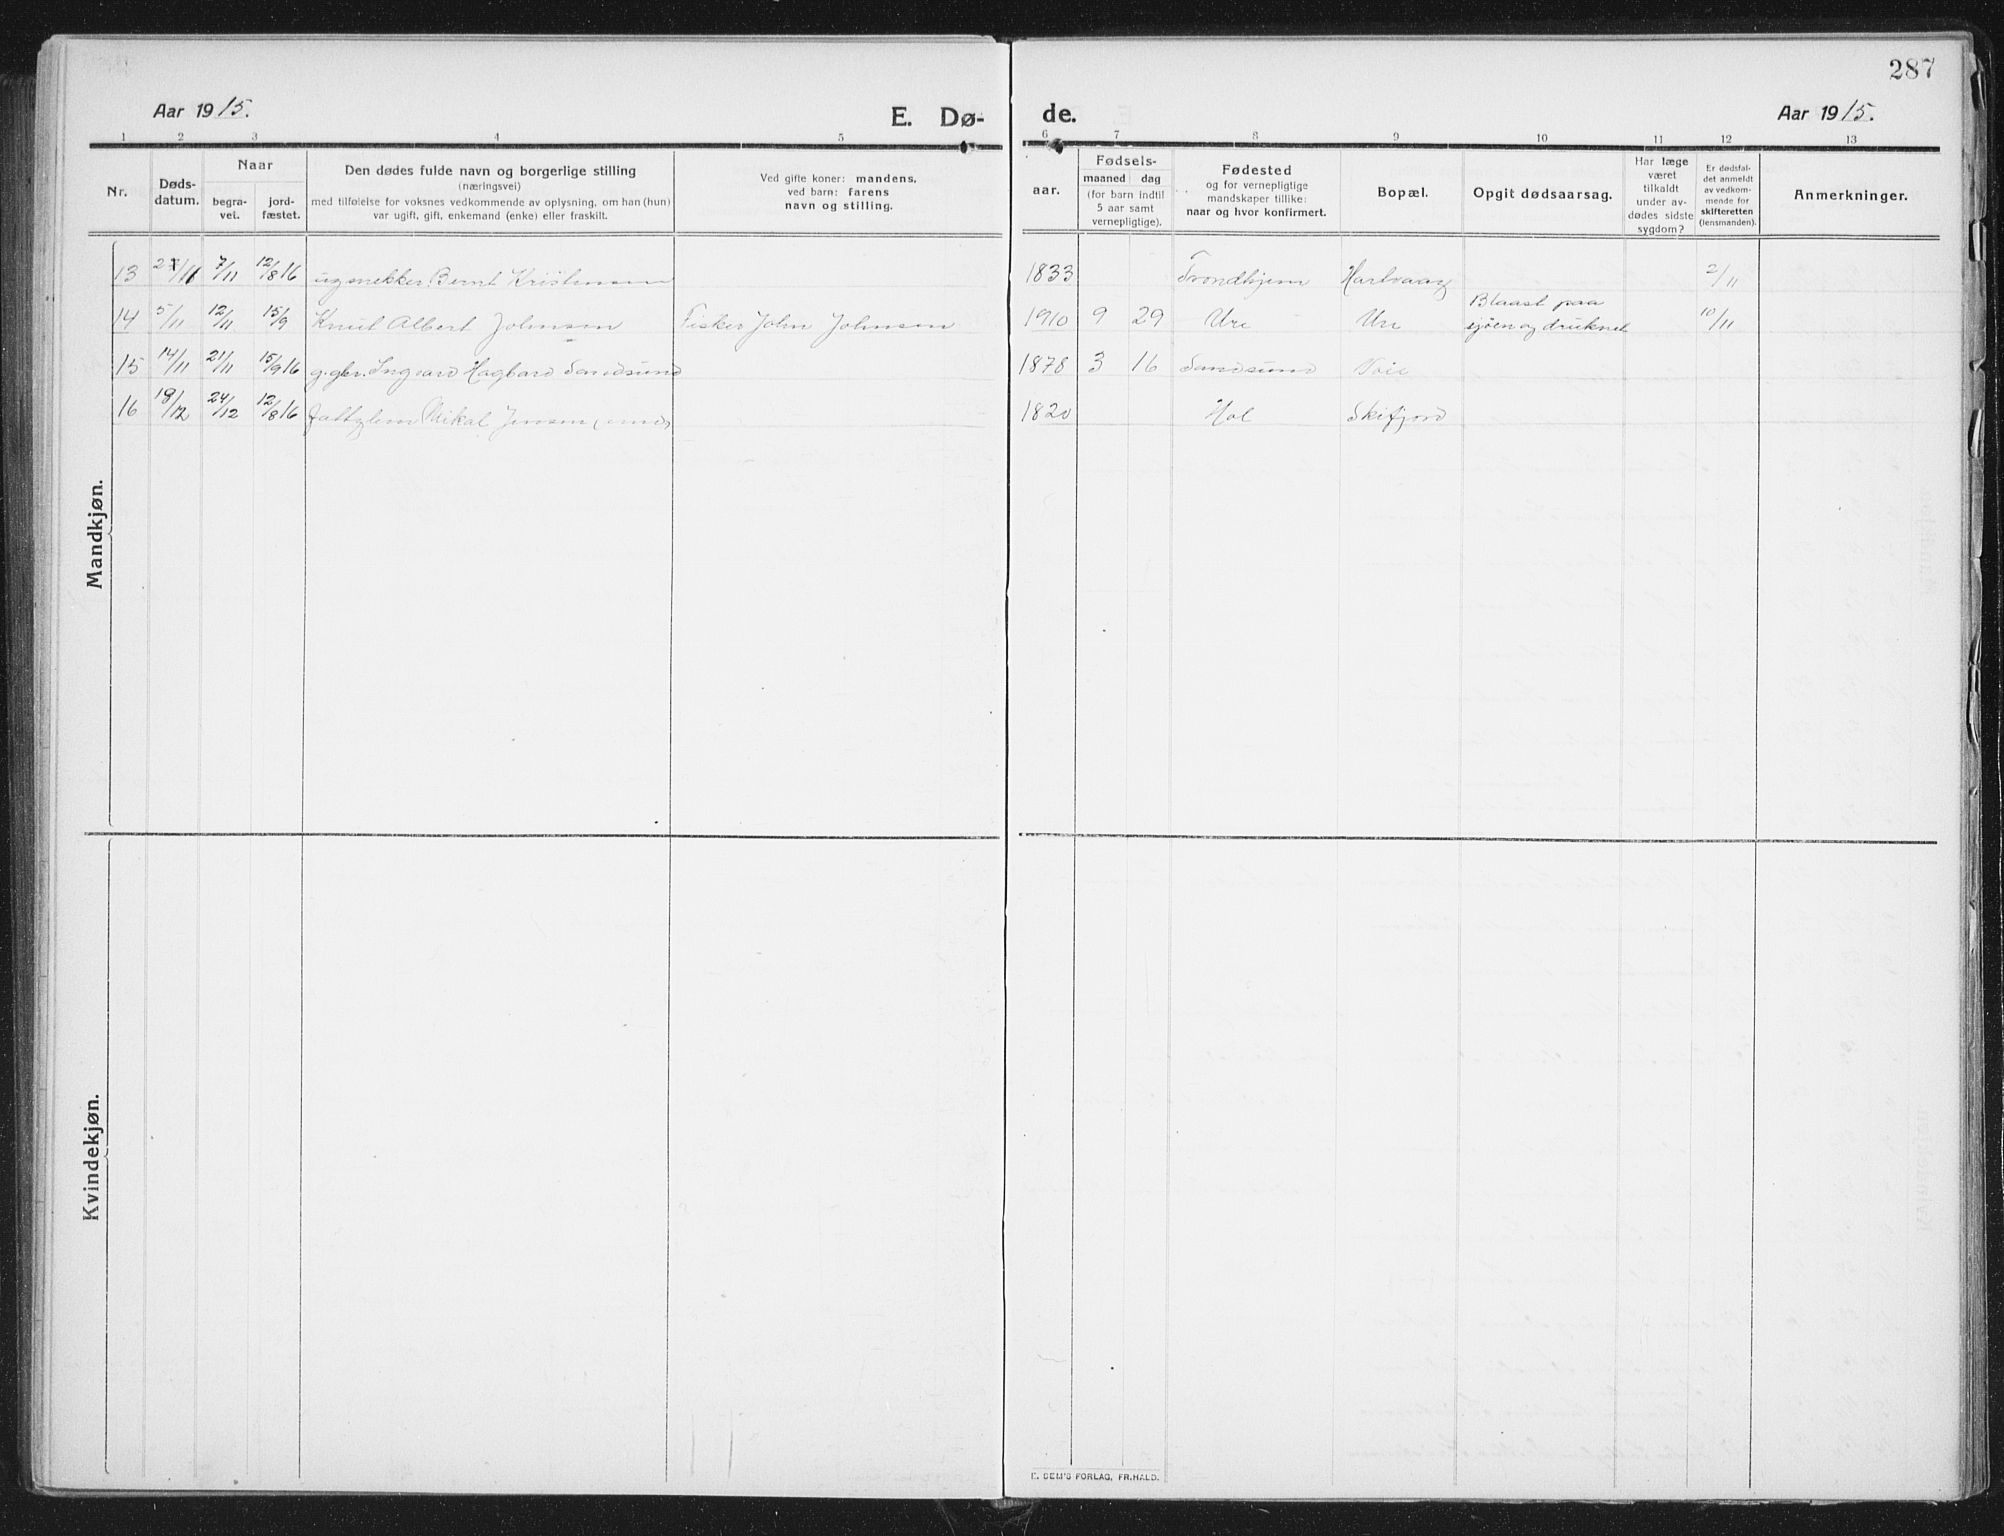 287
Aar 1915.
E. Dø-
de.
Aar 1915.
1 2 3 4 5 6 7 8 9 10 11 12 13
Nr.
Døds-
datum.
Naar
begra-
vet.
jord-
fæstet.
Den dødes fulde navn og borgerlige stilling
(næringsvei)
med tilføielse for voksnes vedkommende av oplysning, om han (hun)
var ugift, gift, enkemand (enke) eller fraskilt.
Ved gifte koner: mandens,
ved barn: farens
navn og stilling.
aar.
Fødsels-
maaned dag
(for barn indtil
5 aar samt
vernepligtige).
Fødested
og for vernepligtige
mandskaper tillike:
naar og hvor konfirmert.
Bopæl.
Opgit dødsaarsag.
Har læge
været
tilkaldt
under av-
dødes sidste
sygdom?
Er dødsfal-
det anmeldt
av vedkom-
mende for
skifteretten
(lensmanden).
Anmerkninger.
Mandkjøn.
13 7/11 12/8 16 ug snekker Bernt Kristensen 1833 Trondhjem Hartvaag 2/11
14 5/11 12/11 15/9 Knut Albert Johnsen Fisker John Johnsen 1910 9 29 Ure Ure Blaast paa
sjøen og druknet 10/11
15 14/11 21/11 15/9 16 g. gbr. Ingvard Hagbard Sandsund 1878 3 16 Sandsund
16 19/12 24/12 12/8 16 Mikal Jensen 1820 Hol Skifjord
Kvindekjøn.
E. SEM'S FORLAG, FR.HALD.